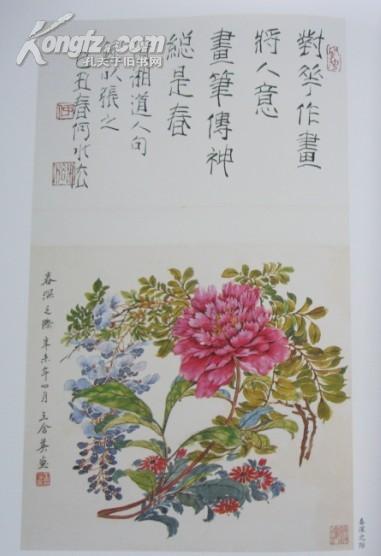 Kongfz.com
孔夫子旧书网
對花作畫
將人意
畫筆傳神
總是春
湘道人句
張之
丑春何水法
春深之際 辛未年四月 王合英畫
春深之际